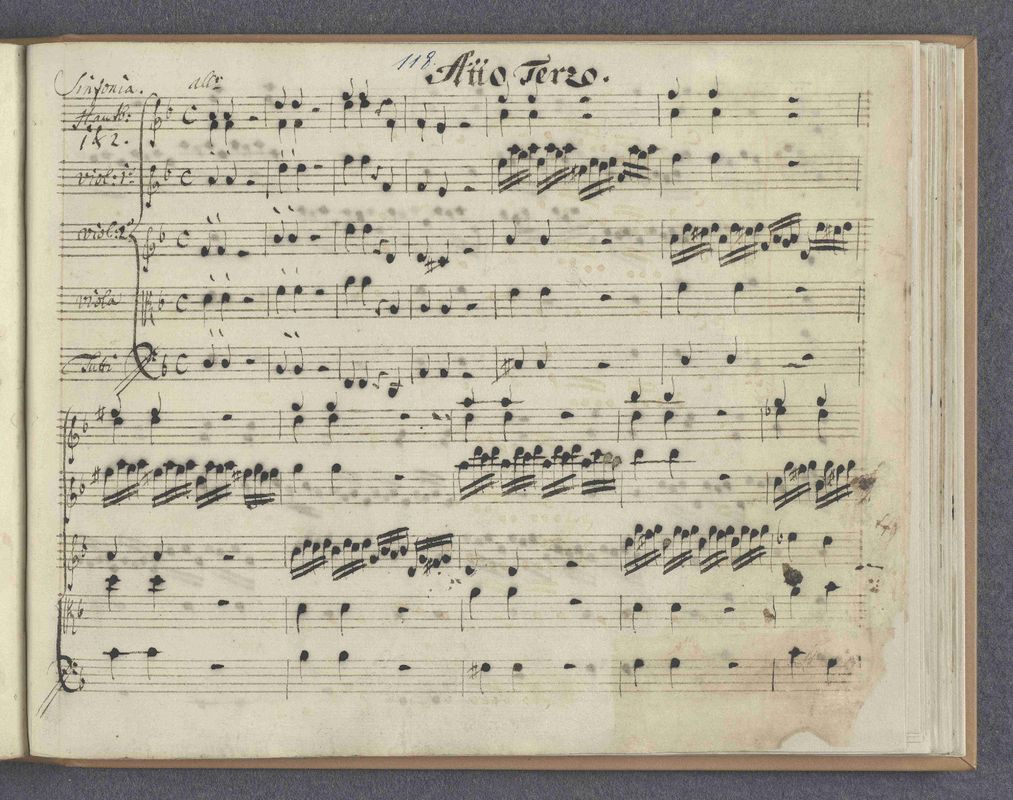 118.
Atto Terzo.
Sinfonia. allo
Hautb:
1 & 2.
viol: 1º
viol: 2º
viola
Tutti